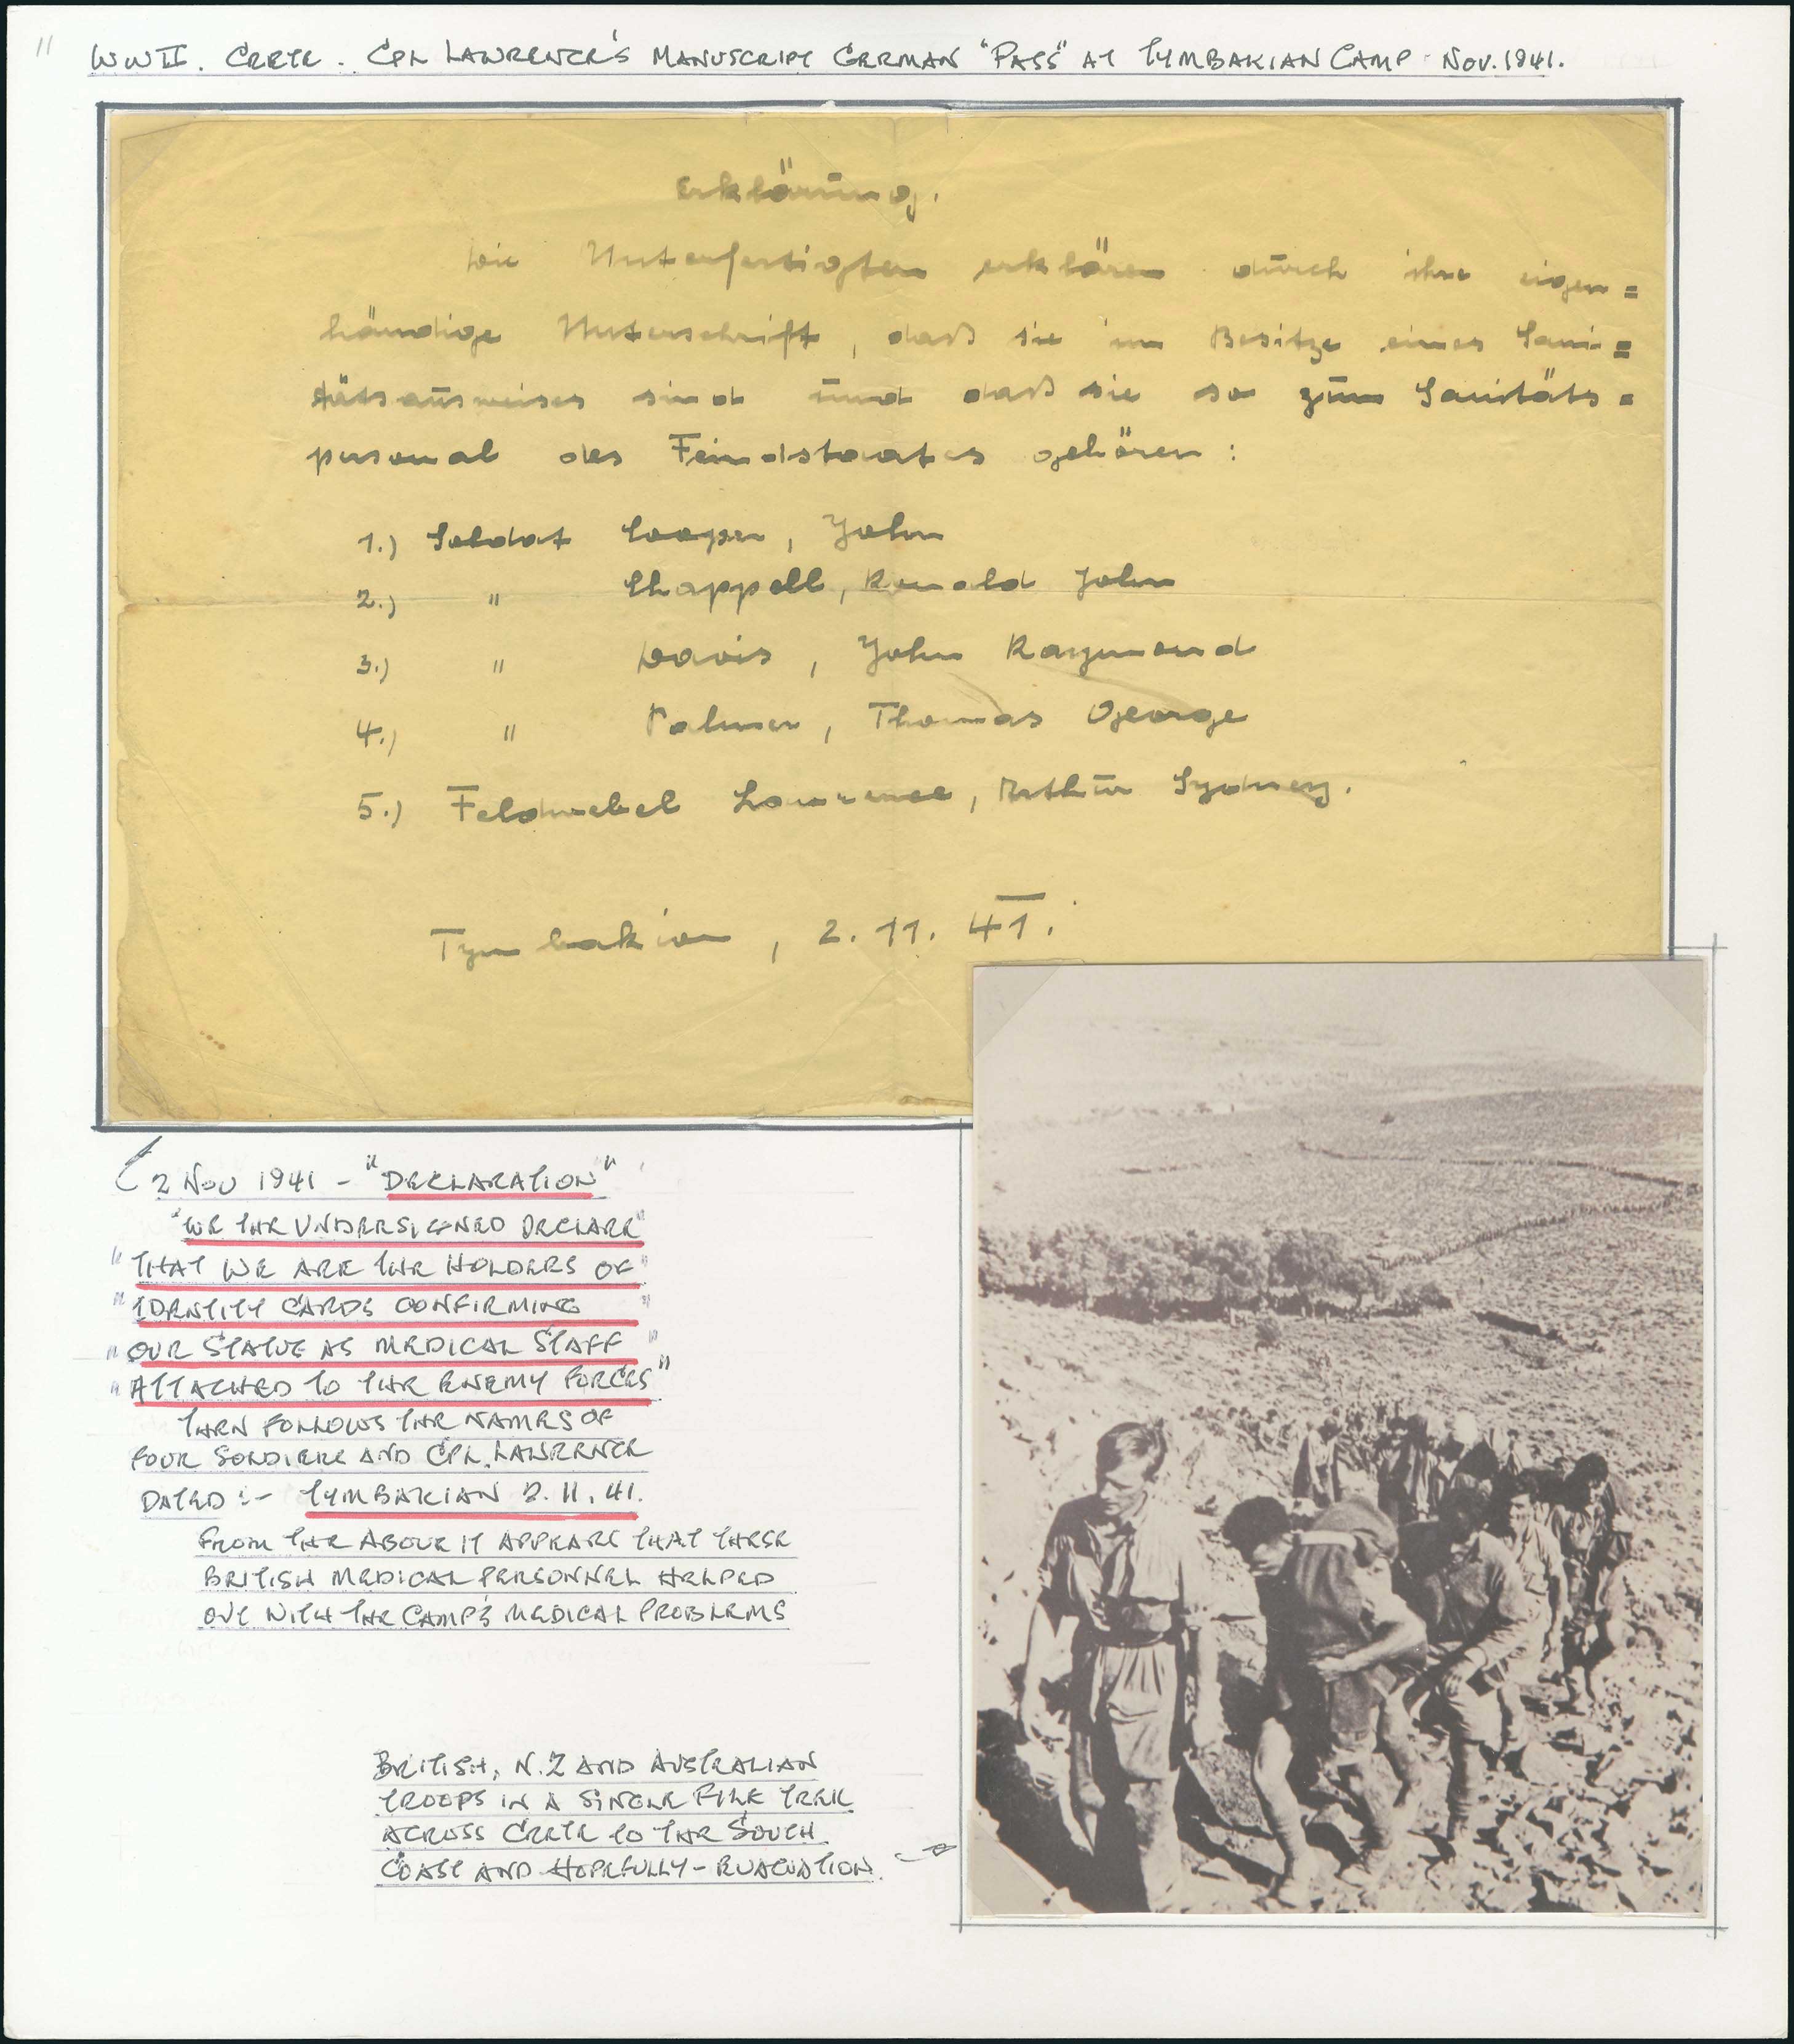 11
WWII. CRETE. CPL LAWRENCE'S MANUSCRIPT GERMAN "PASS" AT TYMBAKIAN CAMP - NOV. 1941.
Erklärung.
Die Unterfertigten erklären durch ihre eigen=
händige Unterschrift, daß sie im Besitze eines Sani=
tätsausweises sind und daß sie so zum Sanitäts=
personal des Feindstaates gehören:
1.) Soldat Cooper, John
2.) " Chappell, Ronald John
3.) " Davis, John Raymond
4.) " Palmer, Thomas George
5.) Feldwebel Lawrence, Arthur Sydney.
Tymbakion, 2. 11. 41.
2 NOV 1941 - "DECLARATION"
"WE THE UNDERSIGNED DECLARE"
"THAT WE ARE THE HOLDERS OF"
"IDENTITY CARDS CONFIRMING"
"OUR STATUS AS MEDICAL STAFF"
"ATTACHED TO THE ENEMY FORCES"
THEN FOLLOWS THE NAMES OF
FOUR SOLDIERS AND CPL. LAWRENCE
DATED :- TYMBAKIAN 2. 11. 41.
FROM THE ABOVE IT APPEARS THAT THESE
BRITISH MEDICAL PERSONNEL HELPED
OUT WITH THE CAMP'S MEDICAL PROBLEMS
BRITISH, N.Z AND AUSTRALIAN
TROOPS IN A SINGLE FILE TREK
ACROSS CRETE TO THE SOUTH
COAST AND HOPEFULLY - EVACUATION.